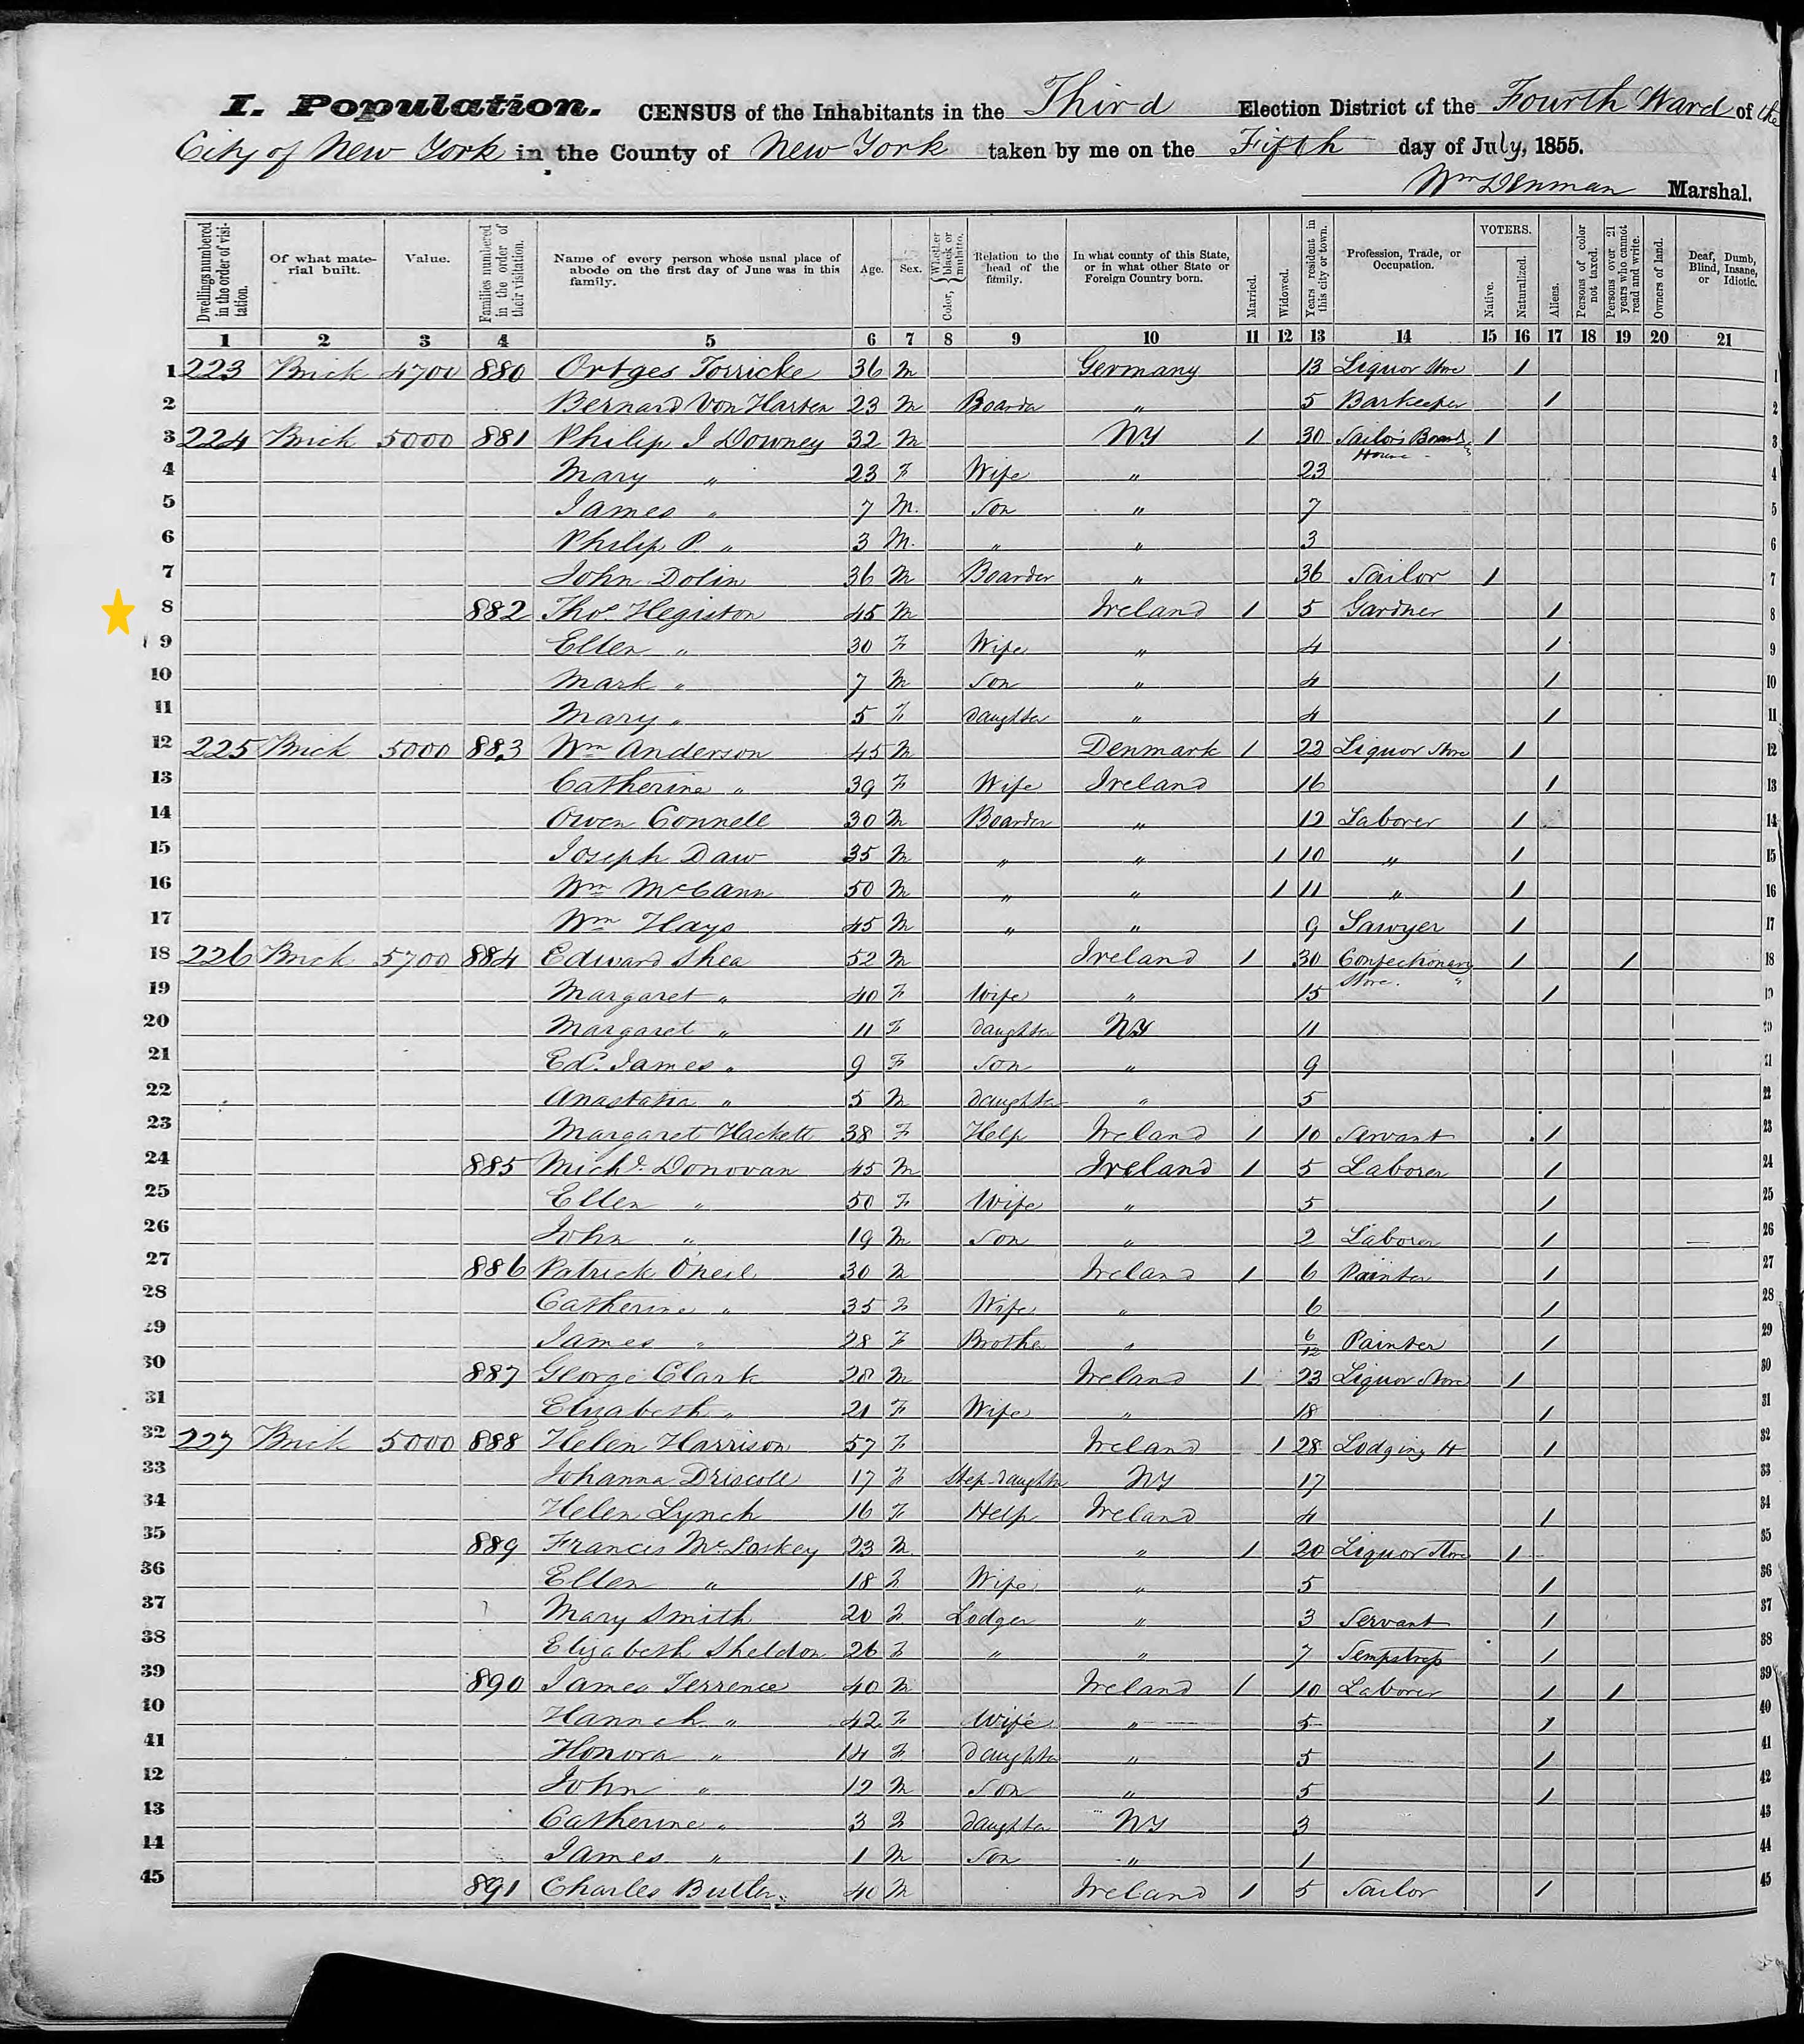 I. Population. CENSUS of the Inhabitants in the Third Election District of the Fourth Ward of the
City of New York in the County of New York taken by me on the Fifth day of July, 1855.
Wm Denman Marshal.
Dwellings numbered in the order of visitation. Of what material built. Value. Families numbered in the order of their visitation. Name of every person whose usual place of abode on the first day of June was in this family. Age. Sex. Color, Whether black or mulatto. Relation to the head of the family. In what county of this State, or in what other State or Foreign Country born. Married. Widowed. Years resident in this city or town. Profession, Trade, or Occupation. VOTERS. Native. Naturalized. Aliens. Persons of color not taxed. Persons over 21 years who cannot read and write. Owners of land. Deaf, Dumb, Blind, Insane, or Idiotic.
1 2 3 4 5 6 7 8 9 10 11 12 13 14 15 16 17 18 19 20 21
1 223 Brick 4700 880 Ortges Torricke 36 M Germany 13 Liquor Store 1 1
2 Bernard Von Harten 23 M Boarder " 5 Barkeeper 1 2
3 224 Brick 5000 881 Philip J Downey 32 M NY 1 30 Sailor's Board House 1 3
4 Mary " 23 F Wife " 23 4
5 James " 7 M. Son " 7 5
6 Philip P. " 3 M. " " 3 6
7 John Dolin 36 M Boarder " 36 Sailor 1 7
8 882 Thos. Hegiston 45 M Ireland 1 5 Gardner 1 8
9 Ellen " 30 F Wife " 4 1 9
10 Mark " 7 M Son " 4 1 10
11 Mary " 5 F daughter " 4 1 11
12 225 Brick 5000 883 Wm Anderson 45 M Denmark 1 22 Liquor Store 1 12
13 Catherine " 39 F Wife Ireland 16 1 13
14 Owen Connell 30 M Boarder " 12 Laborer 1 14
15 Joseph Daw 35 M " " 1 10 " 1 15
16 Wm McCann 50 M " " 1 11 " 1 16
17 Wm Hays 45 M " " 9 Sawyer 1 17
18 226 Brick 5700 884 Edward Shea 52 M Ireland 1 30 Confectionary Store. 1 1 18
19 Margaret " 40 F Wife " 15 1 19
20 Margaret " 11 F daughter NY 11 20
21 Ed. James " 9 F Son " 9 21
22 Anastatia " 5 M daughter " 5 22
23 Margaret Hackett 38 F Help Ireland 1 10 Servant 1 23
24 885 Michl. Donovan 45 M Ireland 1 5 Laborer 1 24
25 Ellen " 50 F Wife " 5 1 25
26 John " 19 M Son " 2 Laborer 1 26
27 886 Patrick O'neil 30 M Ireland 1 6 Painter 1 27
28 Catherine " 35 F Wife " 6 1 28
29 James " 28 F Brother " 6/12 Painter 1 29
30 887 George Clark 28 M Ireland 1 23 Liquor Store 1 30
31 Elizabeth " 21 F Wife " 18 1 31
32 227 Brick 5000 888 Helen Harrison 57 F Ireland 1 28 Lodging H 1 32
33 Johanna Driscoll 17 F Step-daughter NY 17 33
34 Helen Lynch 16 F Help Ireland 4 1 34
35 889 Francis McLoskey 23 M " 1 20 Liquor Store 1 35
36 Ellen " 18 F Wife " 5 1 36
37 Mary Smith 20 F Lodger " 3 Servant 1 37
38 Elizabeth Sheldon 26 F " " 7 Sempstress 1 38
39 890 James Terrence 40 M Ireland 1 10 Laborer 1 1 39
40 Hannah " 42 F Wife " 5 1 40
41 Honora " 14 F daughter " 5 1 41
42 John " 12 M Son " 5 1 42
43 Catherine " 3 F daughter NY 3 43
44 James " 1 M Son " 1 44
45 891 Charles Butler 40 M Ireland 1 5 Sailor 1 45